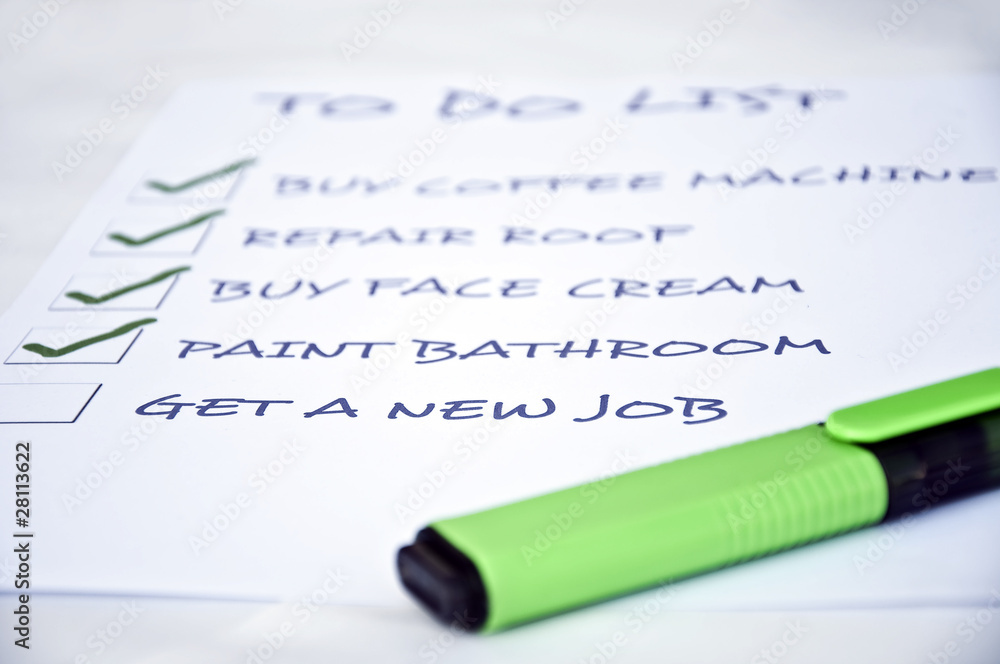 TO DO LIST
BUY COFFEE MACHINE
REPAIR ROOF
BUY FACE CREAM
PAINT BATHROOM
GET A NEW JOB
Adobe Stock | #28113622